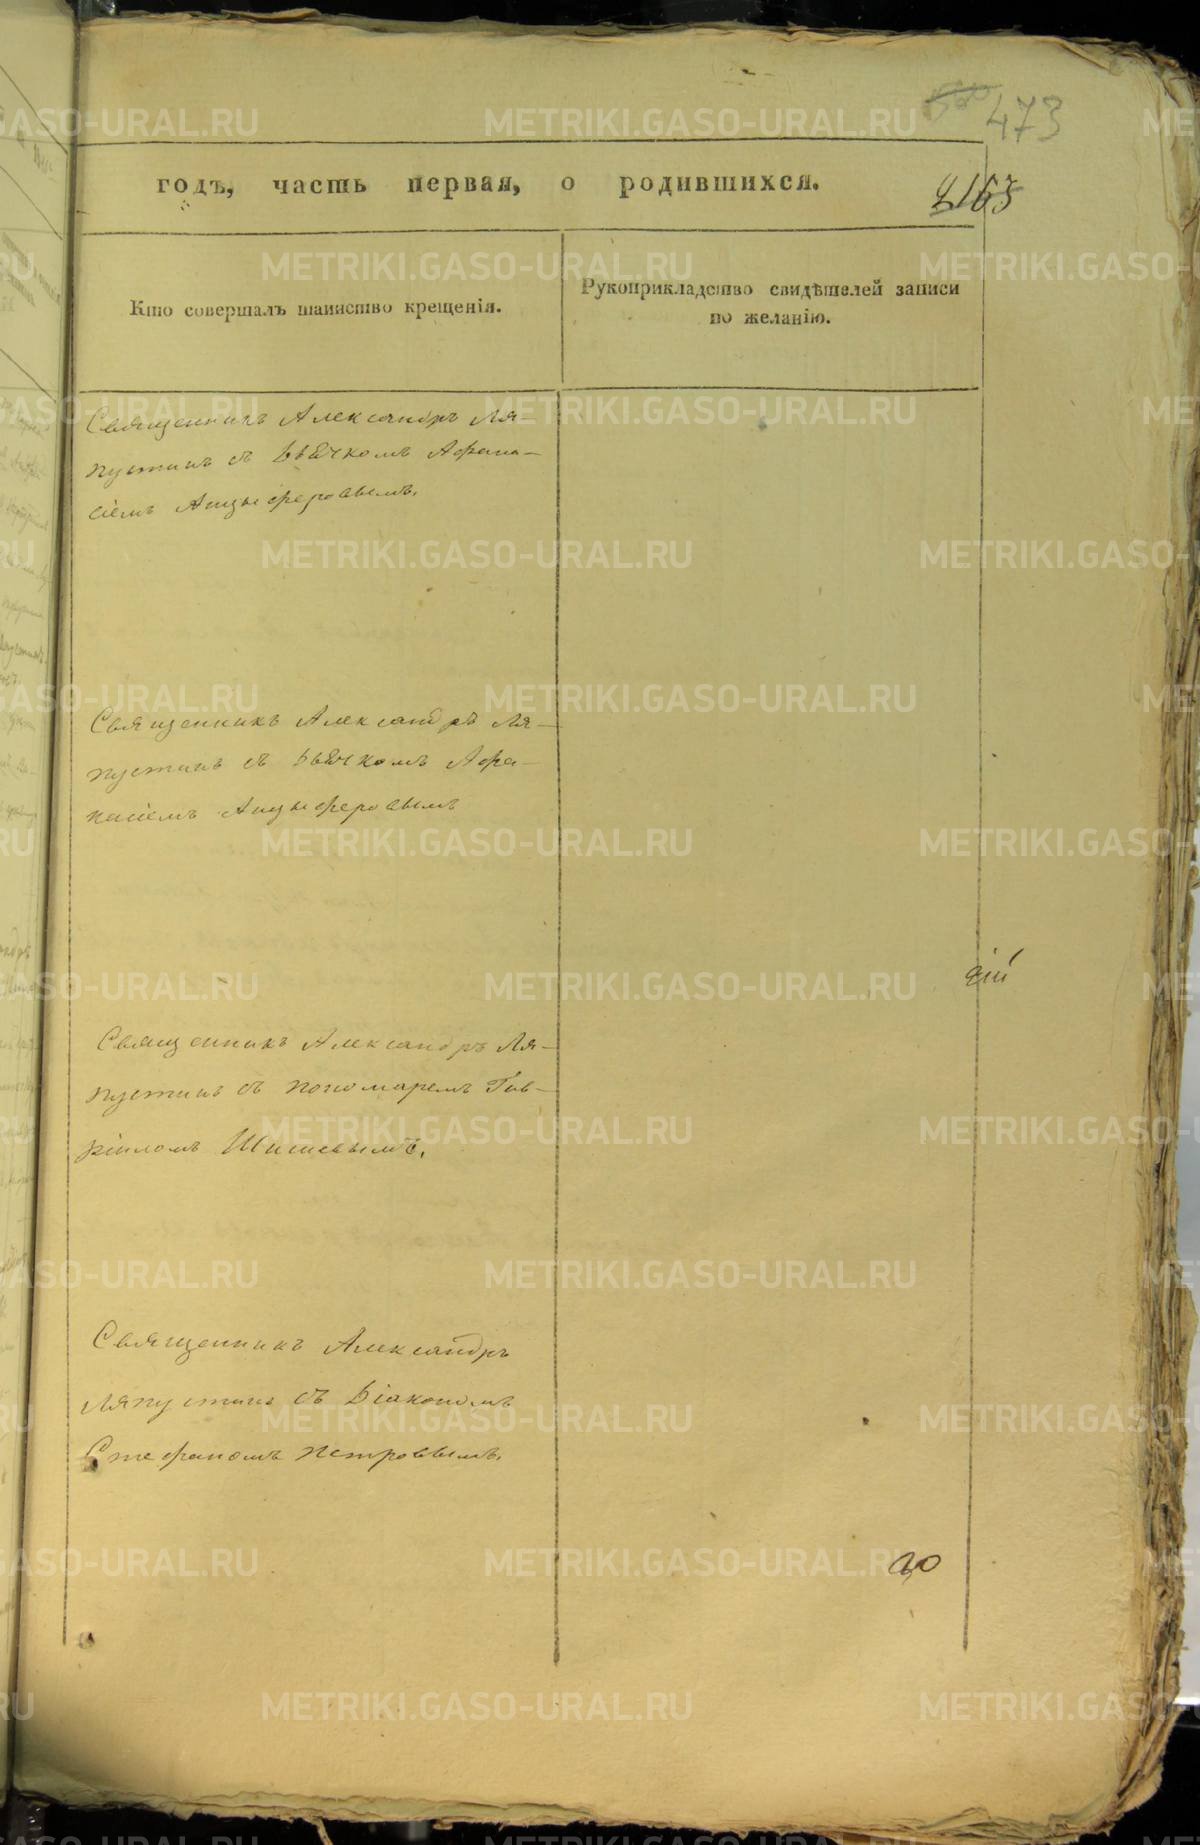 473
годъ, часть первая, о родившихся.
2163
Кто совершалъ таинство крещенія.
Рукоприкладство свидѣтелей записи
по желанію.
Священникъ Александръ Ля-
пустинъ съ Дьячкомъ Афана-
сіемъ Анцыферовымъ.
Священникъ Александръ Ля-
пустинъ съ Дьячкомъ Афа-
насіемъ Анцыферовымъ
Священникъ Александръ Ля-
пустинъ съ пономаремъ Гав-
ріиломъ Шишевымъ.
Священникъ Александръ
Ляпустинъ съ Діакономъ
Стефаномъ Петровымъ.
METRIKI.GASO-URAL.RU